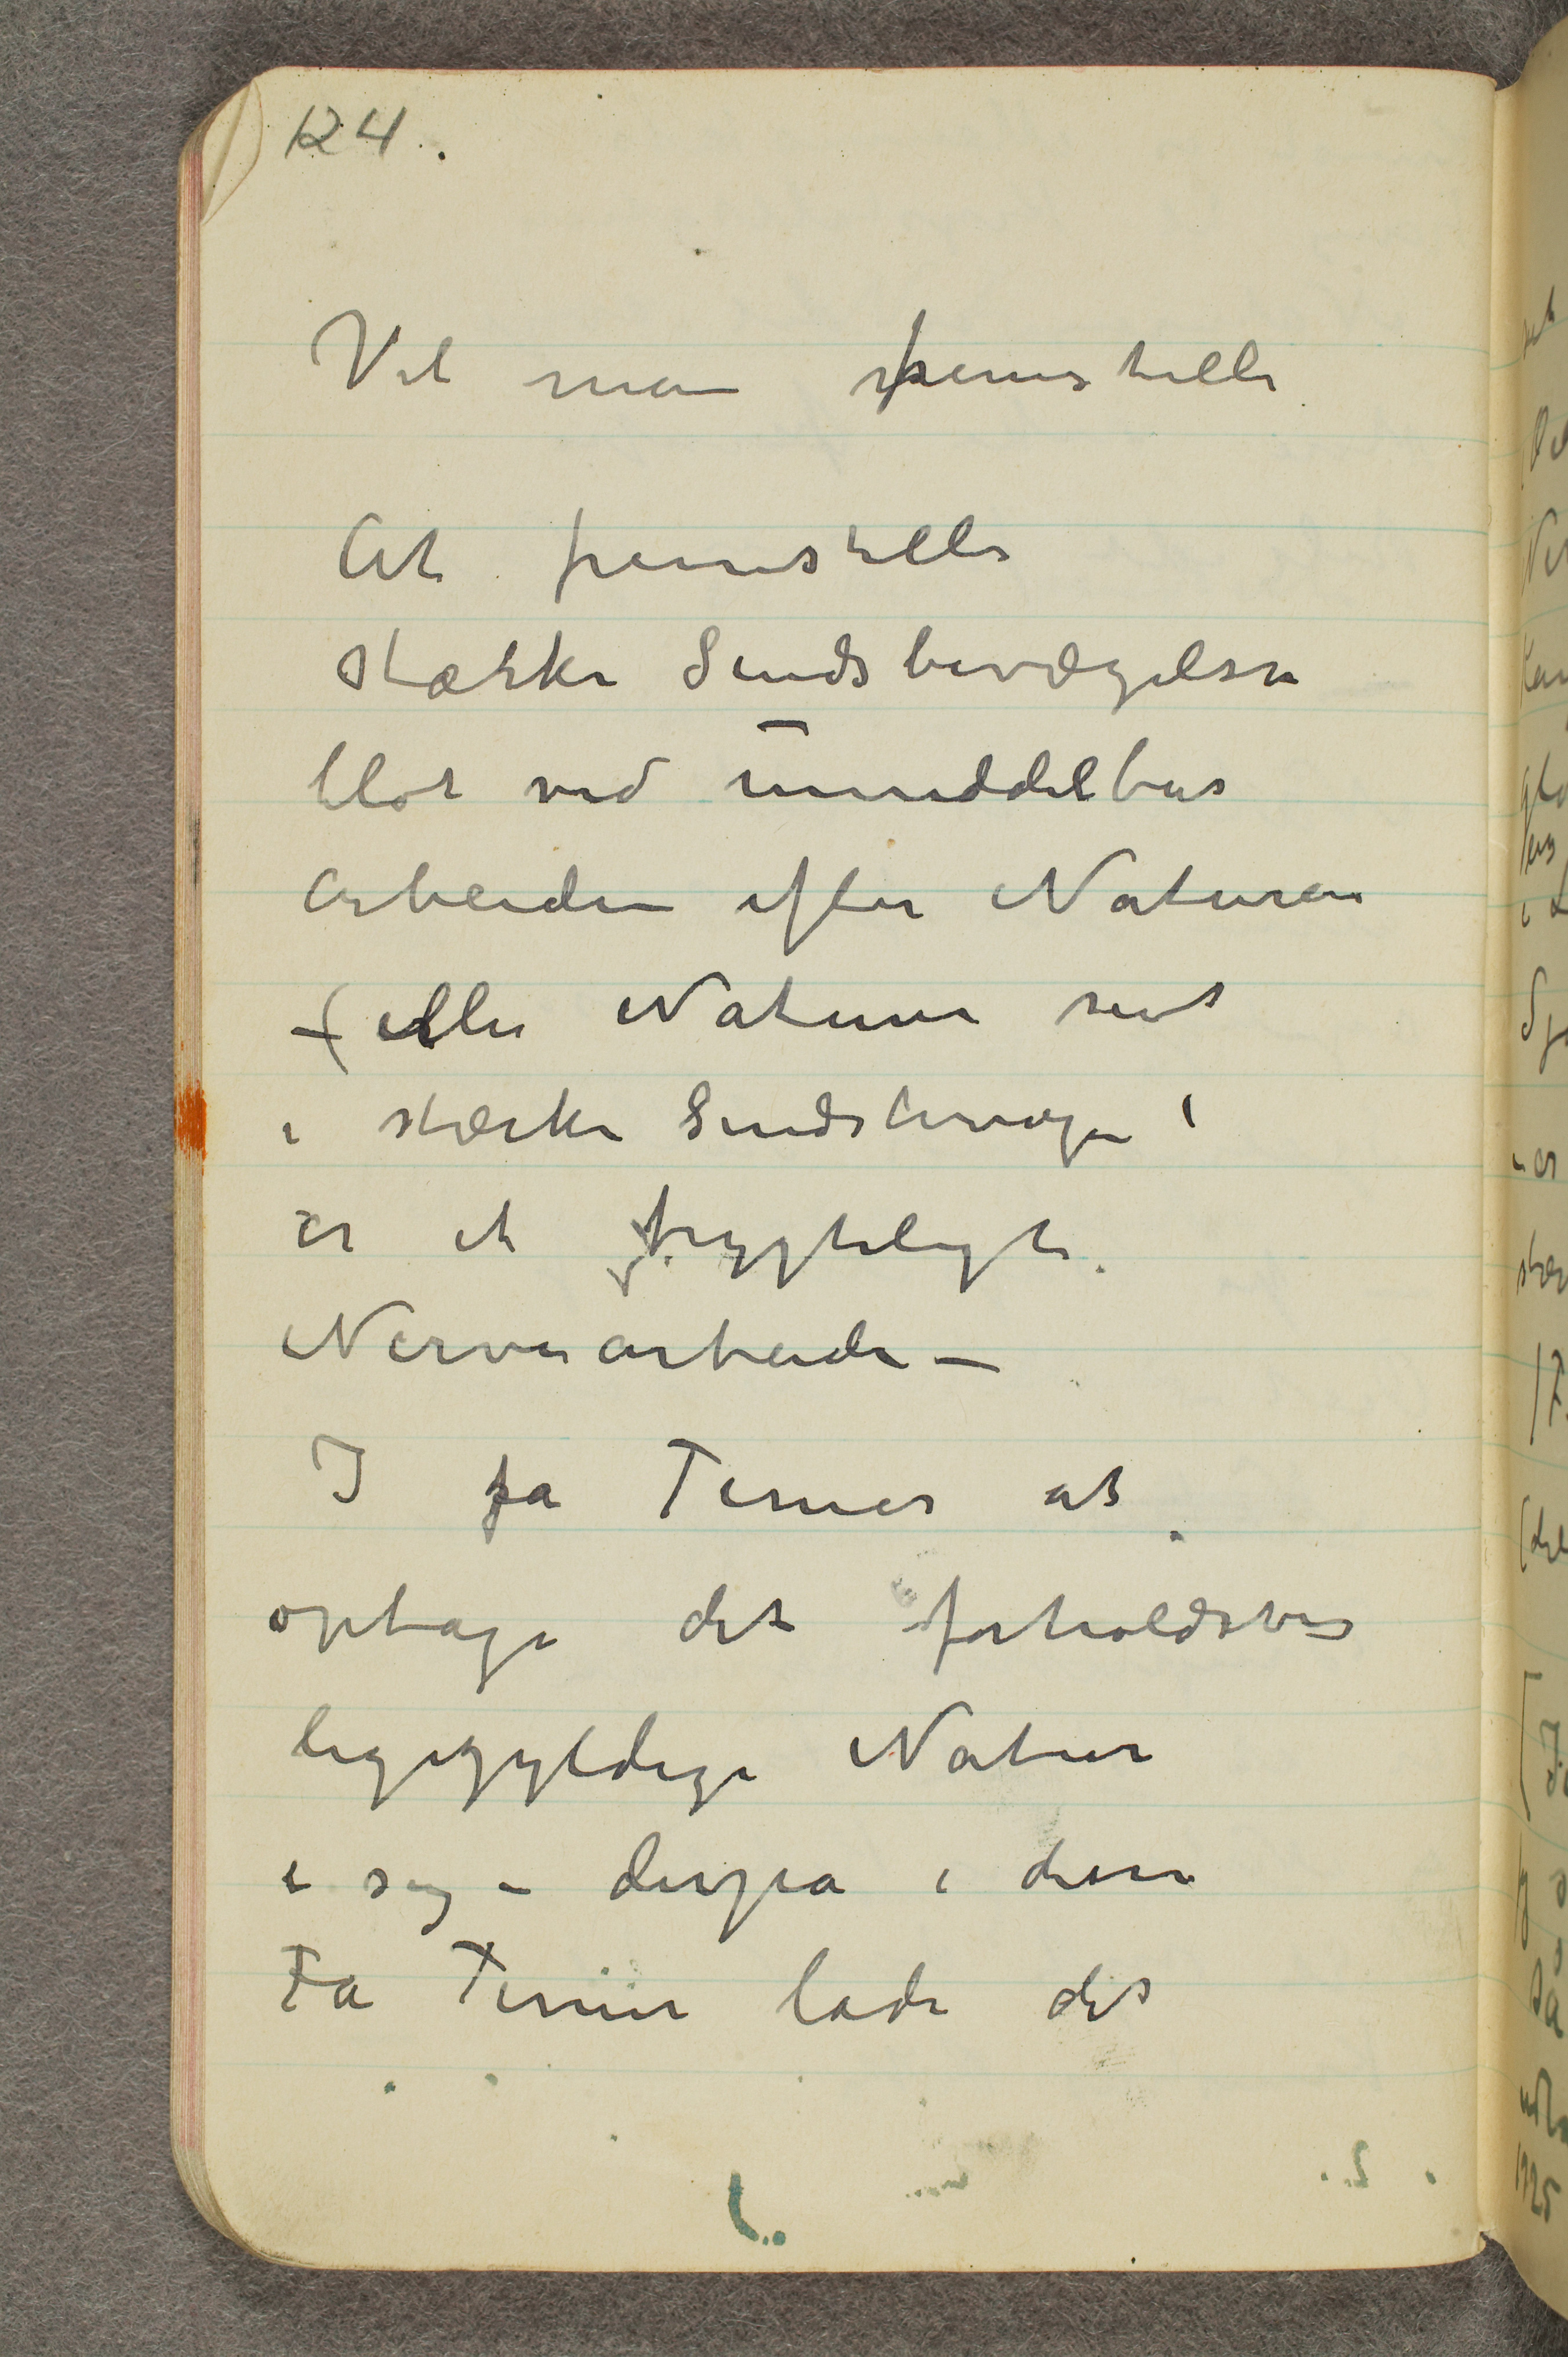 124.
Vil man fremstille
At fremstille
stærke Sindsbevægelser
blot ved umiddelbar
Arbeiden efter Naturen
– (eller Naturen seet
i stærke Sindsbevæg (
er et frygteligt
Nervearbeide –
I få Timer at
optage det forholdsvis
ligegyldige Natur
i sig – derpå i disse
Få Timer lade det